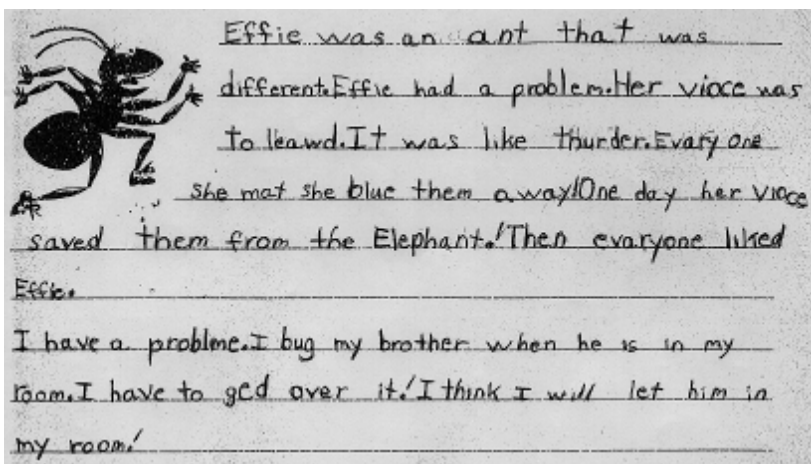 Effie was an ant that was
different.Effie had a problem.Her vioce was
to leawd.It was like thurder.Evary one
she mat she blue them away!One day her vioce
saved them from the Elephant.!Then evaryone liked
Effie.
I have a probleme.I bug my brother when he is in my
room.I have to ged over it.!I think I will let him in
my room.!